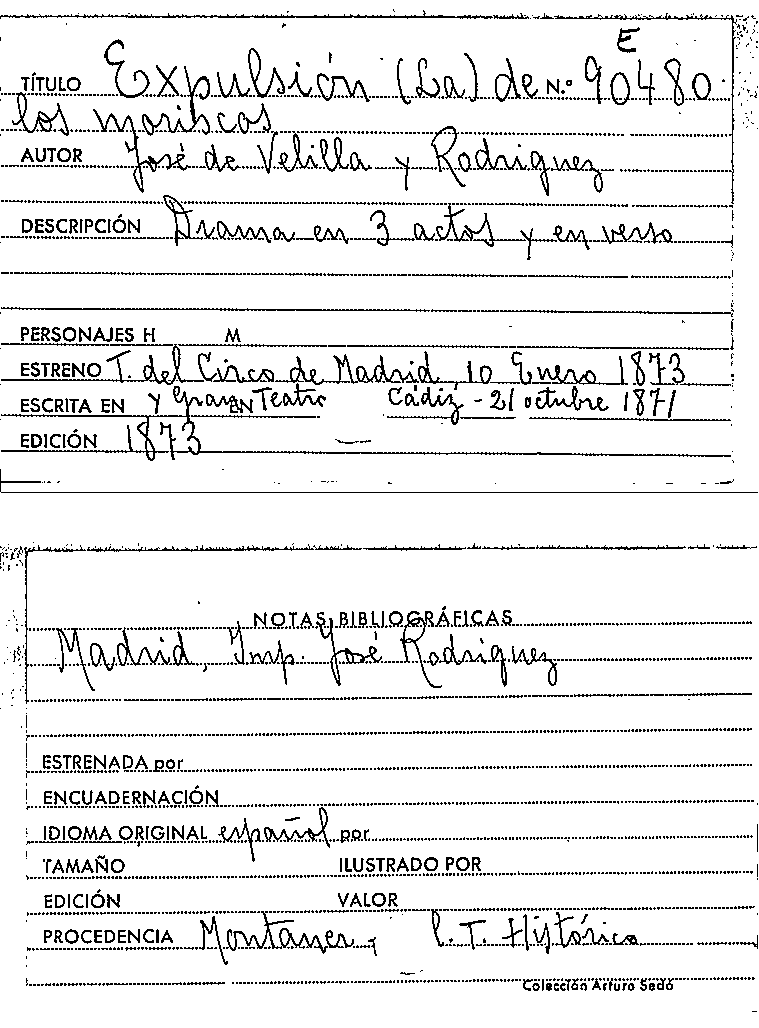 E
TÍTULO Expulsión (La) de N.º 90480
los moriscos
AUTOR José de Velilla y Rodriguez
DESCRIPCIÓN Drama en 3 actos y en verso
PERSONAJES H M
ESTRENO T. del Circo de Madrid, 10 Enero 1873
ESCRITA EN y Gran EN Teatro Cádiz - 21 octubre 1871
EDICIÓN 1873 —
NOTAS BIBLIOGRÁFICAS
Madrid, Imp. José Rodriguez
ESTRENADA por
ENCUADERNACIÓN
IDIOMA ORIGINAL español por
TAMAÑO ILUSTRADO POR
EDICIÓN VALOR
PROCEDENCIA Montaner, T. Histórico
Colección Arturo Sedó